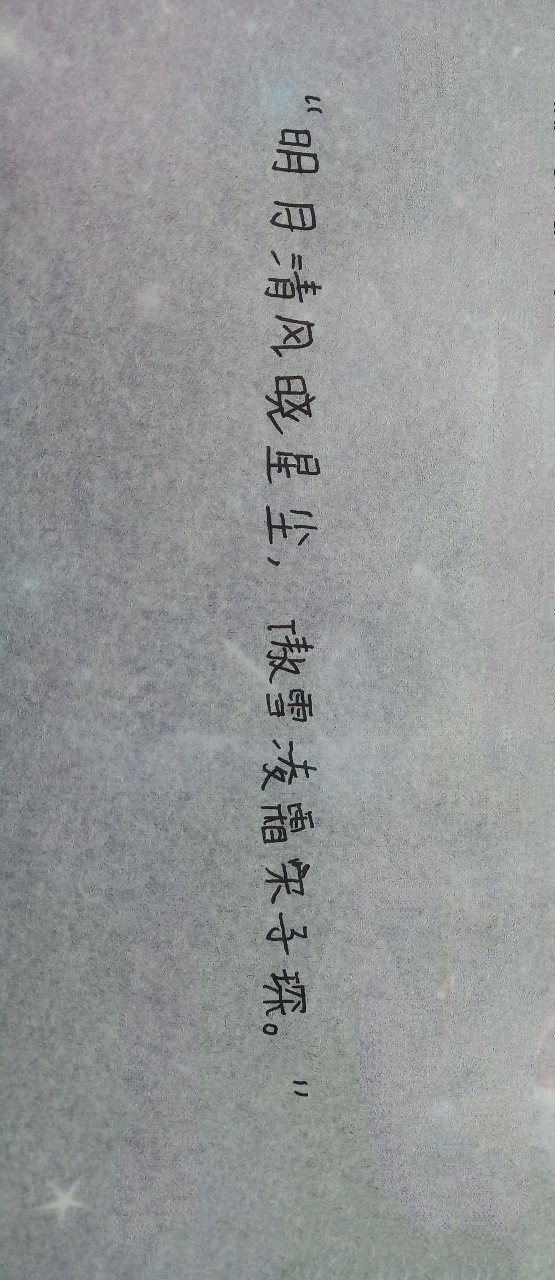 “明月清风晓星尘，傲雪凌霜宋子琛。”